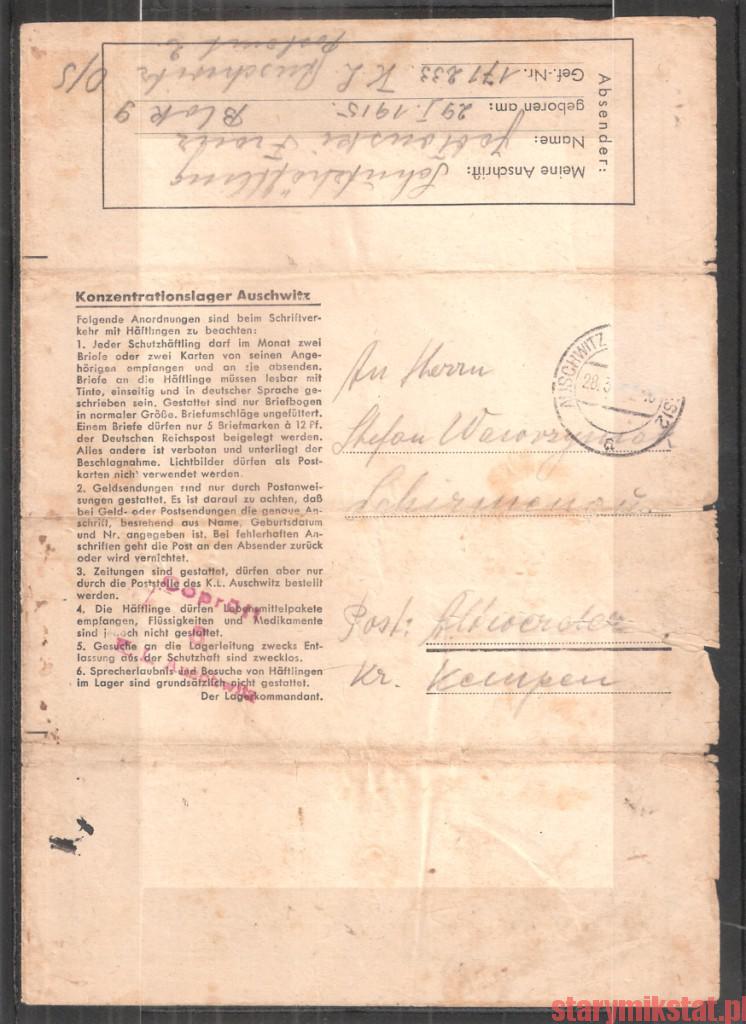 Absender:
Meine Anschrift: Schutzhäftling
Name: Franz
geboren am: 29 I. 1915. Block 9
Gef.-Nr. 171233. K. L. Auschwitz O/S
Postamt 2
Konzentrationslager Auschwitz
Folgende Anordnungen sind beim Schriftver-
kehr mit Häftlingen zu beachten:
1. Jeder Schutzhäftling darf im Monat zwei
Briefe oder zwei Karten von seinen Ange-
hörigen empfangen und an sie absenden.
Briefe an die Häftlinge müssen lesbar mit
Tinte, einseitig und in deutscher Sprache ge-
schrieben sein. Gestattet sind nur Briefbogen
in normaler Größe. Briefumschläge ungefüttert.
Einem Briefe dürfen nur 5 Briefmarken à 12 Pf.
der Deutschen Reichspost beigelegt werden.
Alles andere ist verboten und unterliegt der
Beschlagnahme. Lichtbilder dürfen als Post-
karten nicht verwendet werden.
2. Geldsendungen sind nur durch Postanwei-
sungen gestattet. Es ist darauf zu achten, daß
bei Geld- oder Postsendungen die genaue An-
schrift, bestehend aus Name, Geburtsdatum
und Nr. angegeben ist. Bei fehlerhaften An-
schriften geht die Post an den Absender zurück
oder wird vernichtet.
3. Zeitungen sind gestattet, dürfen aber nur
durch die Poststelle des K.L. Auschwitz bestellt
werden.
4. Die Häftlinge dürfen Lebensmittelpakete
empfangen, Flüssigkeiten und Medikamente
sind jedoch nicht gestattet.
5. Gesuche an die Lagerleitung zwecks Ent-
lassung aus der Schutzhaft sind zwecklos.
6. Sprecherlaubnis und Besuche von Häftlingen
im Lager sind grundsätzlich nicht gestattet.
Der Lagerkommandant.
Geprüft
8
K. L. Auschwitz
AUSCHWITZ
28.3
a
An Herrn
Stefan Wawrzyniak
Schirmenau
Post: Altwerder
Kr. Kempen
starymikstat.pl